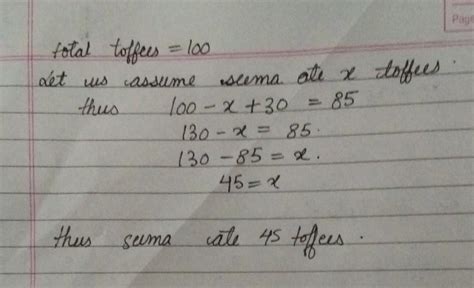 Page
total toffees = 100
Let us assume seema ate x toffees.
thus 100 - x + 30 = 85
130 - x = 85.
130 - 85 = x.
45 = x
thus seema ate 45 toffees.